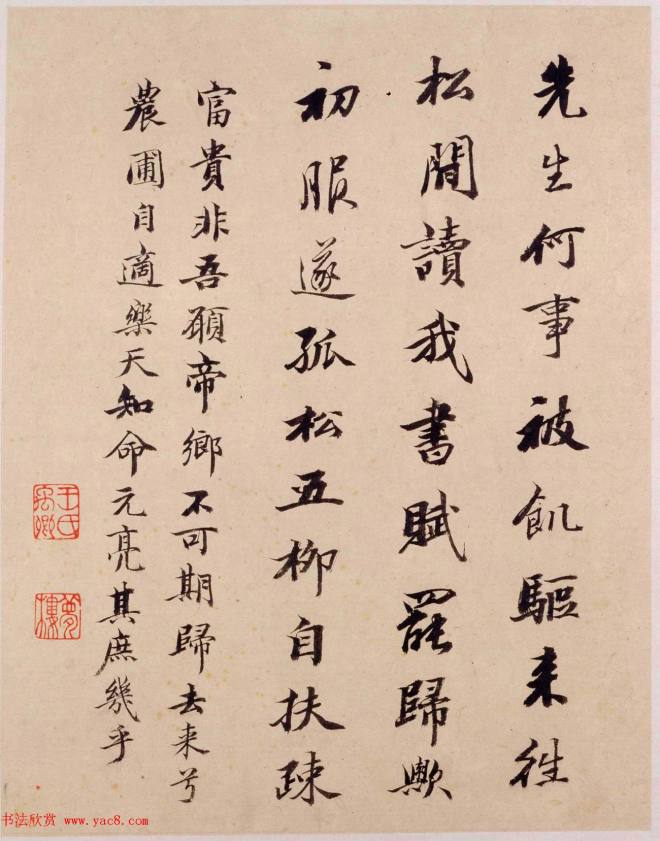 先生何事被飢驅来往
松間讀我書賦罷歸歟
初服遂孤松五柳自扶疎
富貴非吾願帝鄉不可期歸去来兮
農圃自適樂天知命元亮其庶幾乎
王氏禹卿
夢樓
书法欣赏 www.yac8.com